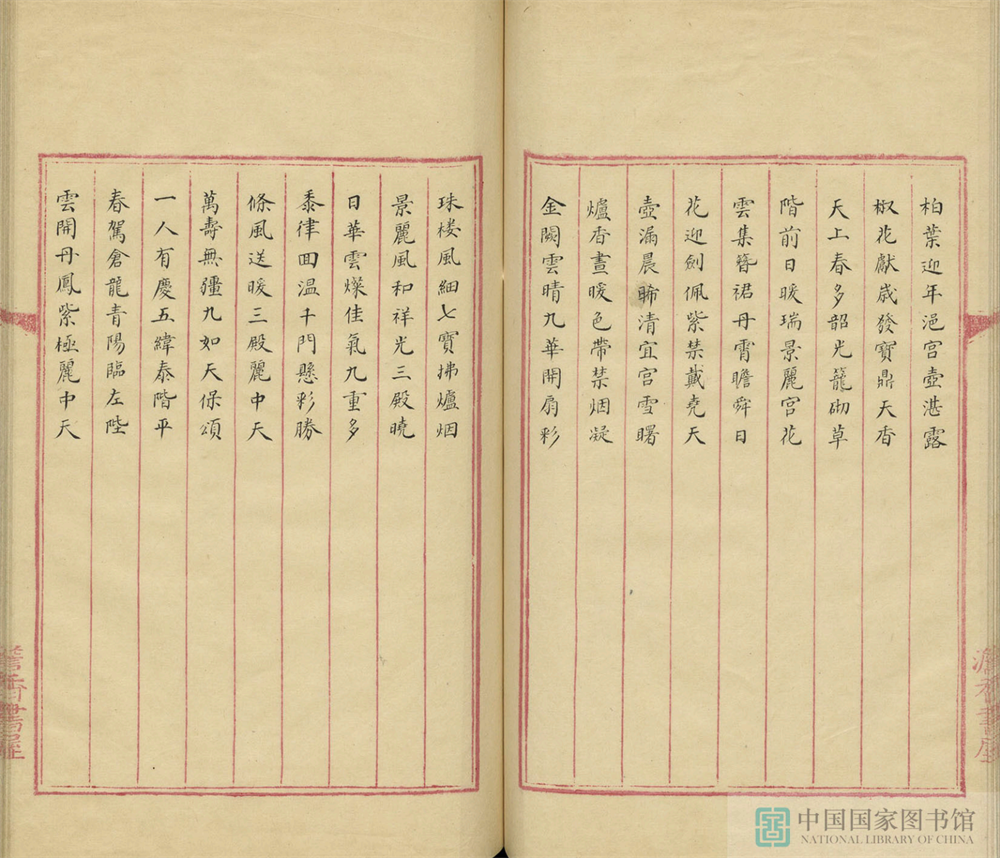 柏葉迎年浥宫壺湛露
椒花獻歲發寶鼎天香
天上春多韶光籠砌草
階前日暖瑞景麗宫花
雲集簪裾丹霄瞻舜日
花迎劍佩紫禁戴堯天
壺漏晨晞清宜宫雪曙
爐香晝暖色帶禁烟凝
金闕雲晴九華開扇彩
珠楼風細七寶拂爐烟
景麗風和祥光三殿曉
日華雲燦佳氣九重多
黍律回温千門懸彩勝
條風送暖三殿麗中天
萬壽無疆九如天保頌
一人有慶五緯泰階平
春駕倉龍青陽臨左陛
雲開丹鳳紫極麗中天
中国国家图书馆
NATIONAL LIBRARY OF CHINA